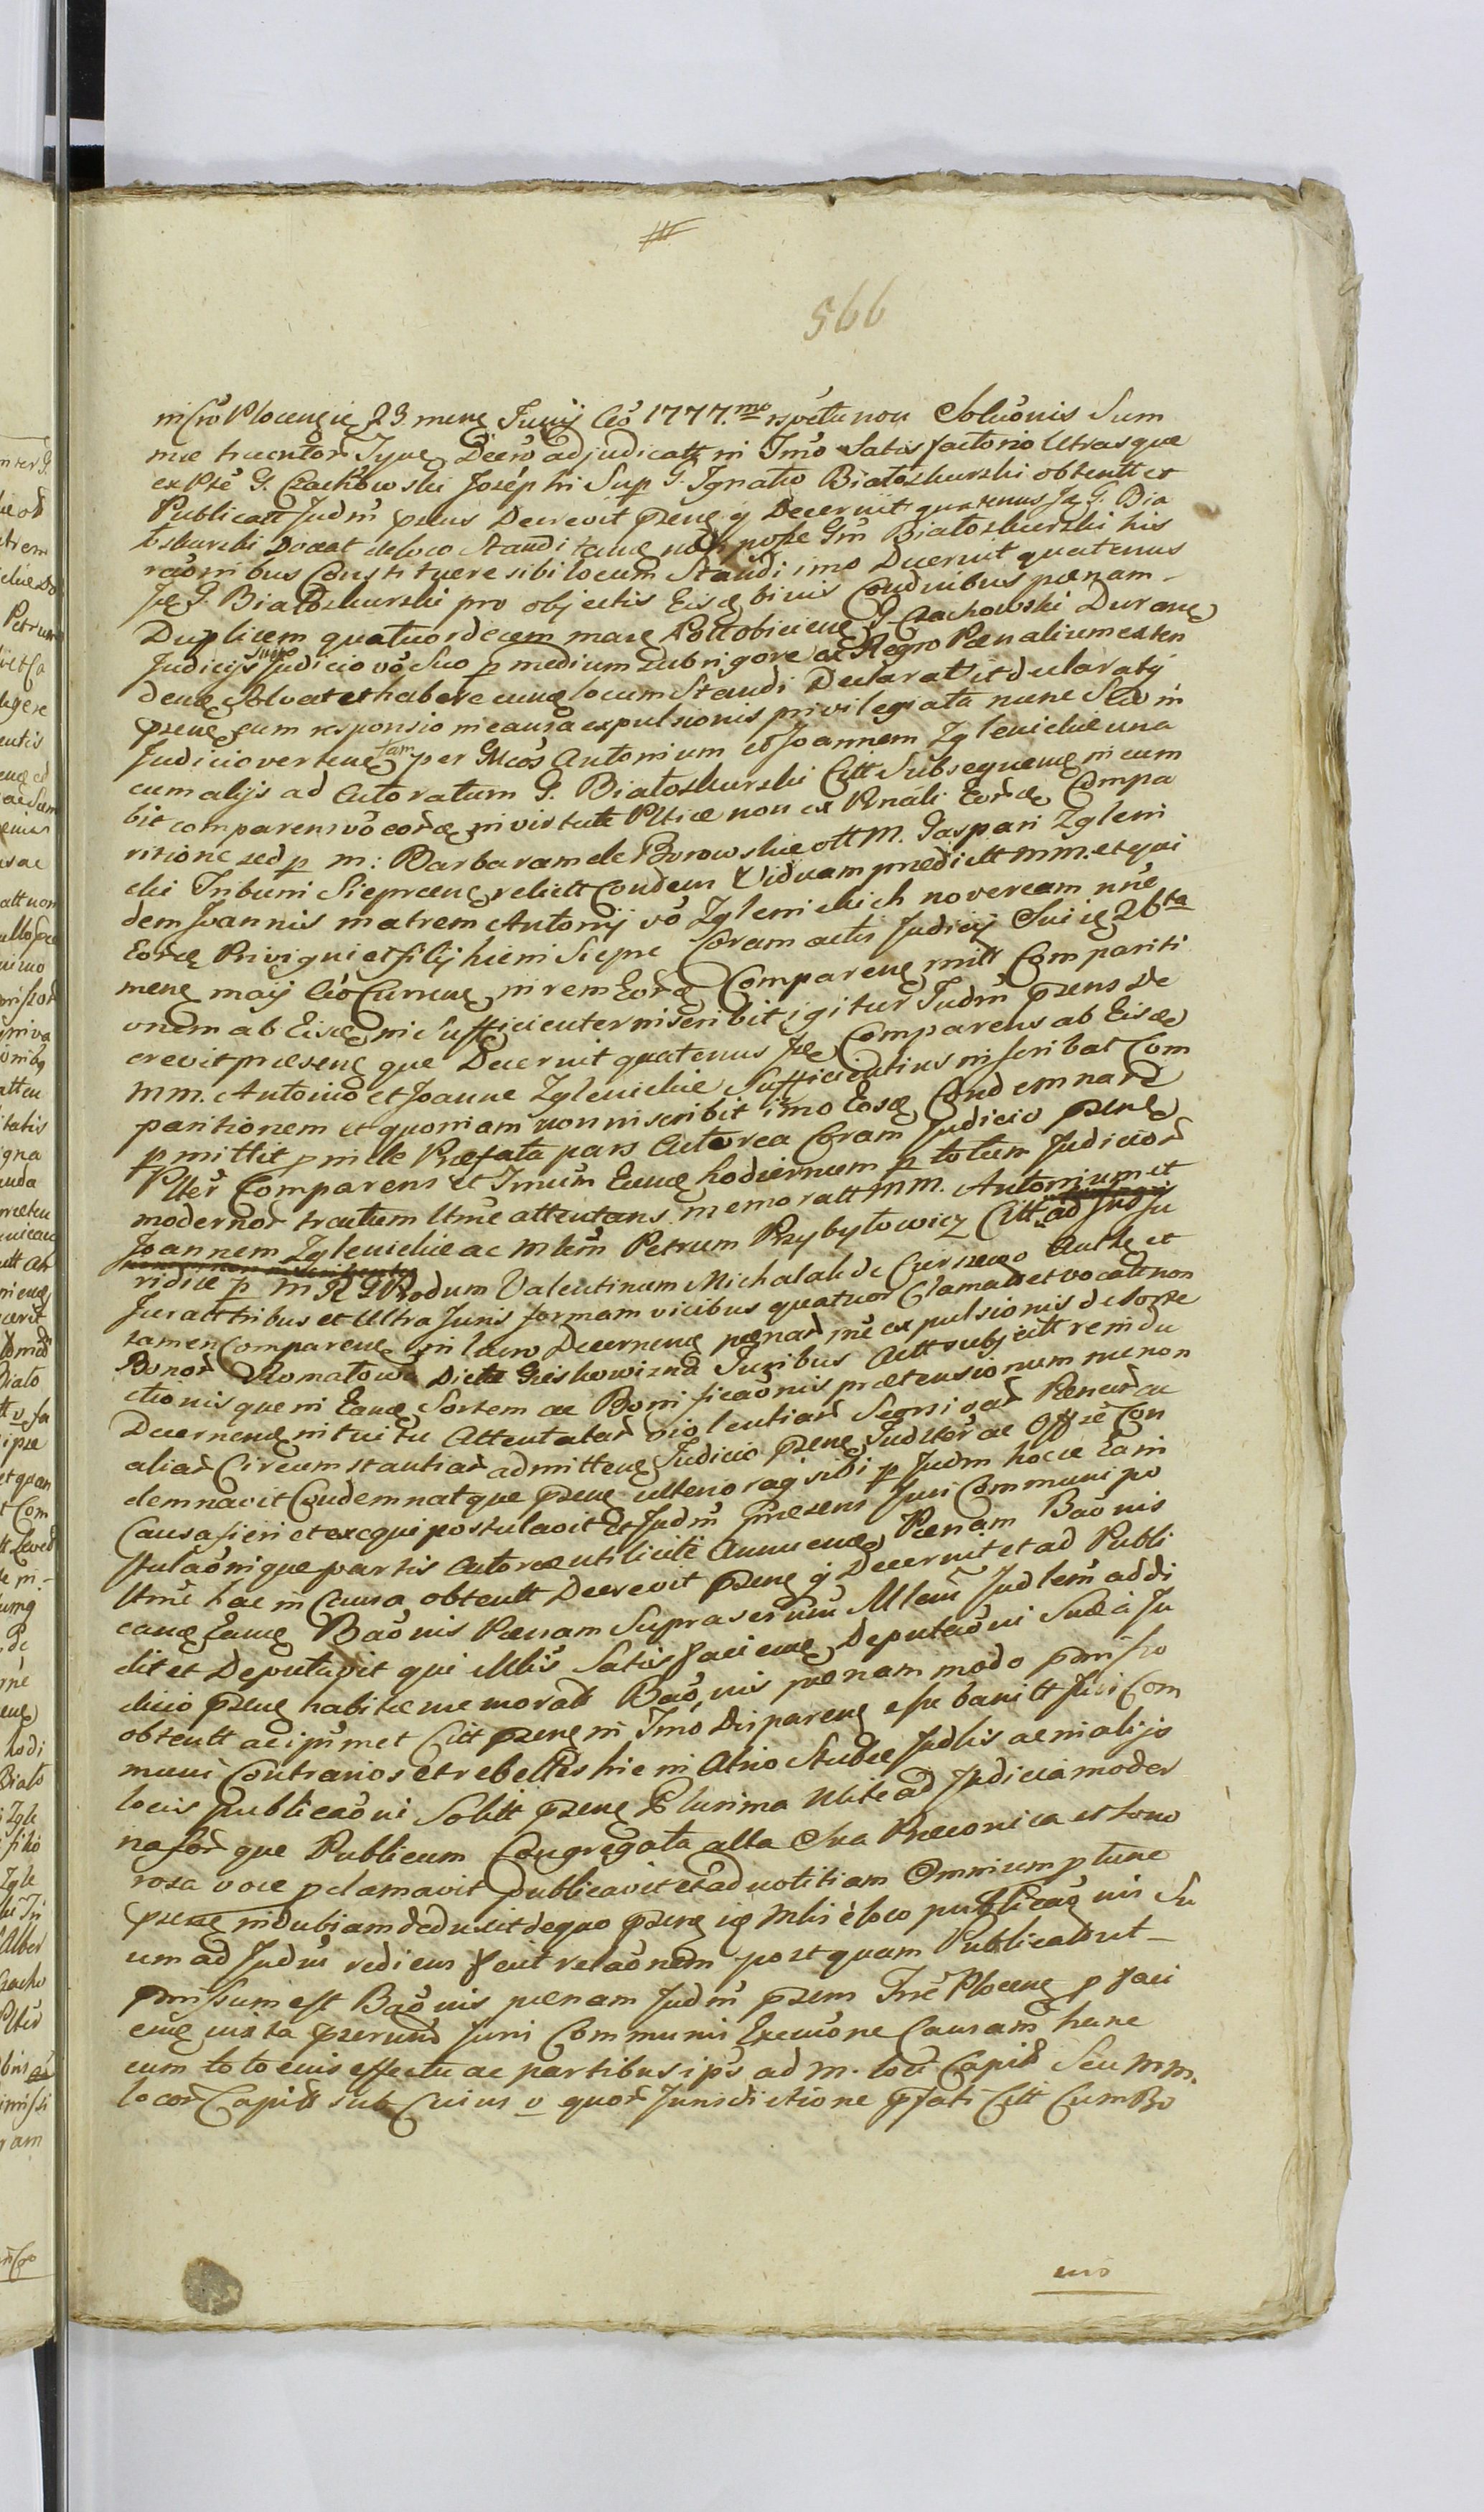 566
in Cro Plocensie 23 mens Junij Ao 1777.mo respectu non Solutionis Sum
mæ trecentor Tynf Decto adjudicatt in Imo Satisfactorio Utrasque
ex Pte G. Czachowski Josephi Sup G. Ignatio Białoskurski obtentt et
Publicatt Judm præns Decrevit præns q Decernit quatenus Jze G. Bia
łoskurski Doceat de loco Standi tandem non posse Gm Białoskurski his
raonibus Constituere sibi locum Standi imo Decernit quatenus
Jze G. Białoskurski pro objectis Eisd binis Condnibus pœnam
Duplicem quatuordecem marc Pott obiciens G. Czachowski Durane
Judicijs Judicio vo Suo p medium sub rigore ex Regro Pœnalium exten
dens Solvat et habere eund locum Standi Declarat et declaratij
præns cum responsio in causa expulsionis privilegiata nunc Sed in
Judicio vertens fam per Mcos Antonium et Joannem Zglenickie una
cum alijs ad Actoratum G. Białoskurski Citt Subsequens in cum
bit comparens vo eord in virtute Pltice non ex Pnali Eord Compa
ritione sed p m: Barbaram de Borowskie ott M. Gaspari Zgleni
cki Tribuni Sieprcens relictt Condem Viduam prædictt MM. et qui
dem Joannis matrem Antonij vo Zglenickich novercam nne
Eord Privigni et filij hic in Siepre Coram actis Judicij Sui ie 26ta
mens maij Ao Currens in rem Eord Comparens mitt Compariti
onem ab Eisd in Sufficienter inscribit igitur Judm præns De
crevit præsens que Decernit quatenus Jze Comparens ab Eisd
MM. Antonio et Joanne Zglenickie Sufficientius inscribat Com
paritionem et quoniam non inscribit imo Eosd Condemnare
pmittit p inde Præfata pars Actorea Coram Judicio præns
Plter Comparens et Imum Eund hodiernum p totum Judicior
modernor tractum Ltme attentans memoratt MM. Antonium et
Joannem Zglenickie ac Mlem Petrum Przybyłowicz Citt ad Jud Ju
ridice p M R G Produm Valentinum Michalak de Cierszewo Authe et
Juratt tribus et Ultra Juris formam vicibus quatuor Clamatt et vocatt non
tamen Comparens in lucro Decernens pœnar ine expulsionis de Sorte
Bonor Romatowo Dicta Grzeskowizna Juribus Actt subjectt reindu
ctionis que in Eand Sortem ac Bonificaonis prætensionum nec non
Decernens in tuitu Attentatar violentiar Seorsivar Pœnar ac
aliar Circumstantiar admittens Judicio præns Judtor ac Offtè Con
demnavit Condemnatque præns ulterior agi sibi p Judm hocce Ea in
Causa fieri et exequi postulavit Et Judm Præsens Juri Communi po
stulaonique partis Actoreæ utilicite Annuens Pœnam Baonis
Ltme hac in Causa obtentt Decrevit præns q Decernit et ad Publi
cand Eand Baonis Pœnam Suprascrtum Mlem Judlem addi
dit et Deputavit qui Mlis Satis faciens Deputaoni Suæ à Ju
dicio præns habitæ memoratt Baonis pœnam modo præmisso
obtentt ac ipsmet Citt præns in Imo Disparens esse banitt Juri Com
muni Contrarios et rebelles hic in Atrio Stubæ Judlis ac in alijs
locis publicaoni Solitt præns Plurima Nltte ad Judicia moder
na for que Publicum Congregata alta Sua Præconica et Sono
rosa voce pclamavit publicavit et ad notitiam Omnium p tunc
præns indubiam deduxit de quo præns ie Mlis è loco publicaonis Su
um ad Judm rediens fecit relaonem postquam Publicatt ut
præmissum est Baonis pœnam Judm præns Tne Plocens p faci
end iuxta prærum Juri Communis Execuone Causam hanc
cum toto eius effectu ac partibus ips ad M. loci Capitt Seu MM.
locor Capitt sub Cuius v quor Jurisdictione præfati Citt Cum Bo
nis